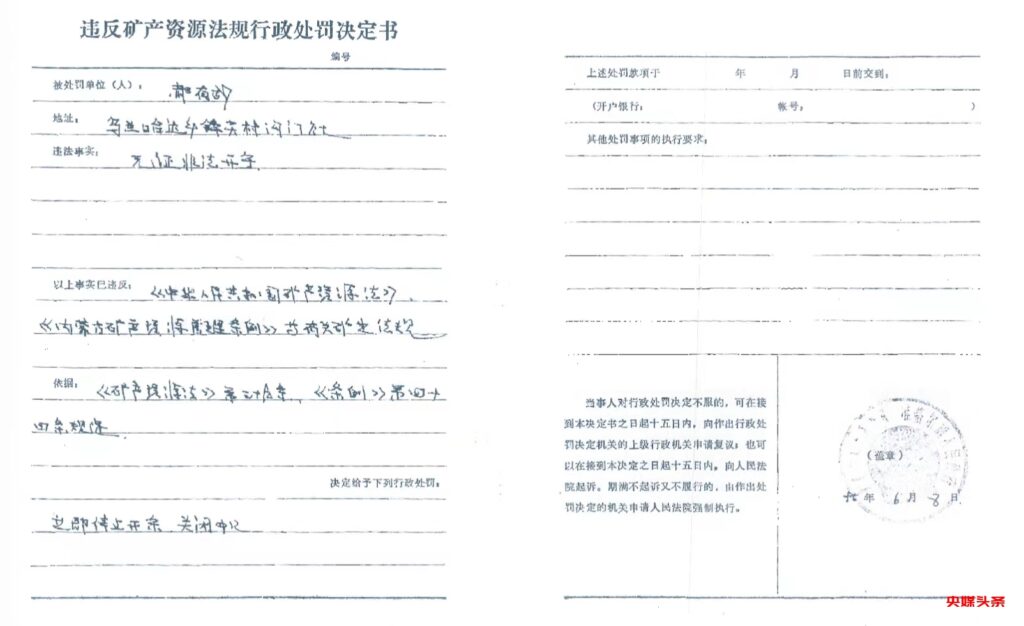 违反矿产资源法规行政处罚决定书
编号
被处罚单位(人):
地址: 乌兰哈达乡
违法事实:
无证非法开采
以上事实已违反: 《中华人民共和国矿产资源法》、
《内蒙古矿产资源管理条例》等有关矿产法规
依据: 《矿产资源法》 《条例》第四十
四条规定
决定给予下列行政处罚:
立即停止开采 关闭
上述处罚款项于 年 月 日前交到:
(开户银行: 帐号: )
其他处罚事项的执行要求:
当事人对行政处罚决定不服的,可在接
到本决定书之日起十五日内,向作出行政处
罚决定机关的上级行政机关申请复议;也可
以在接到本决定之日起十五日内,向人民法
院起诉。期满不起诉又不履行的,由作出处
罚决定的机关申请人民法院强制执行。
(盖章)
年6月8日
央媒头条